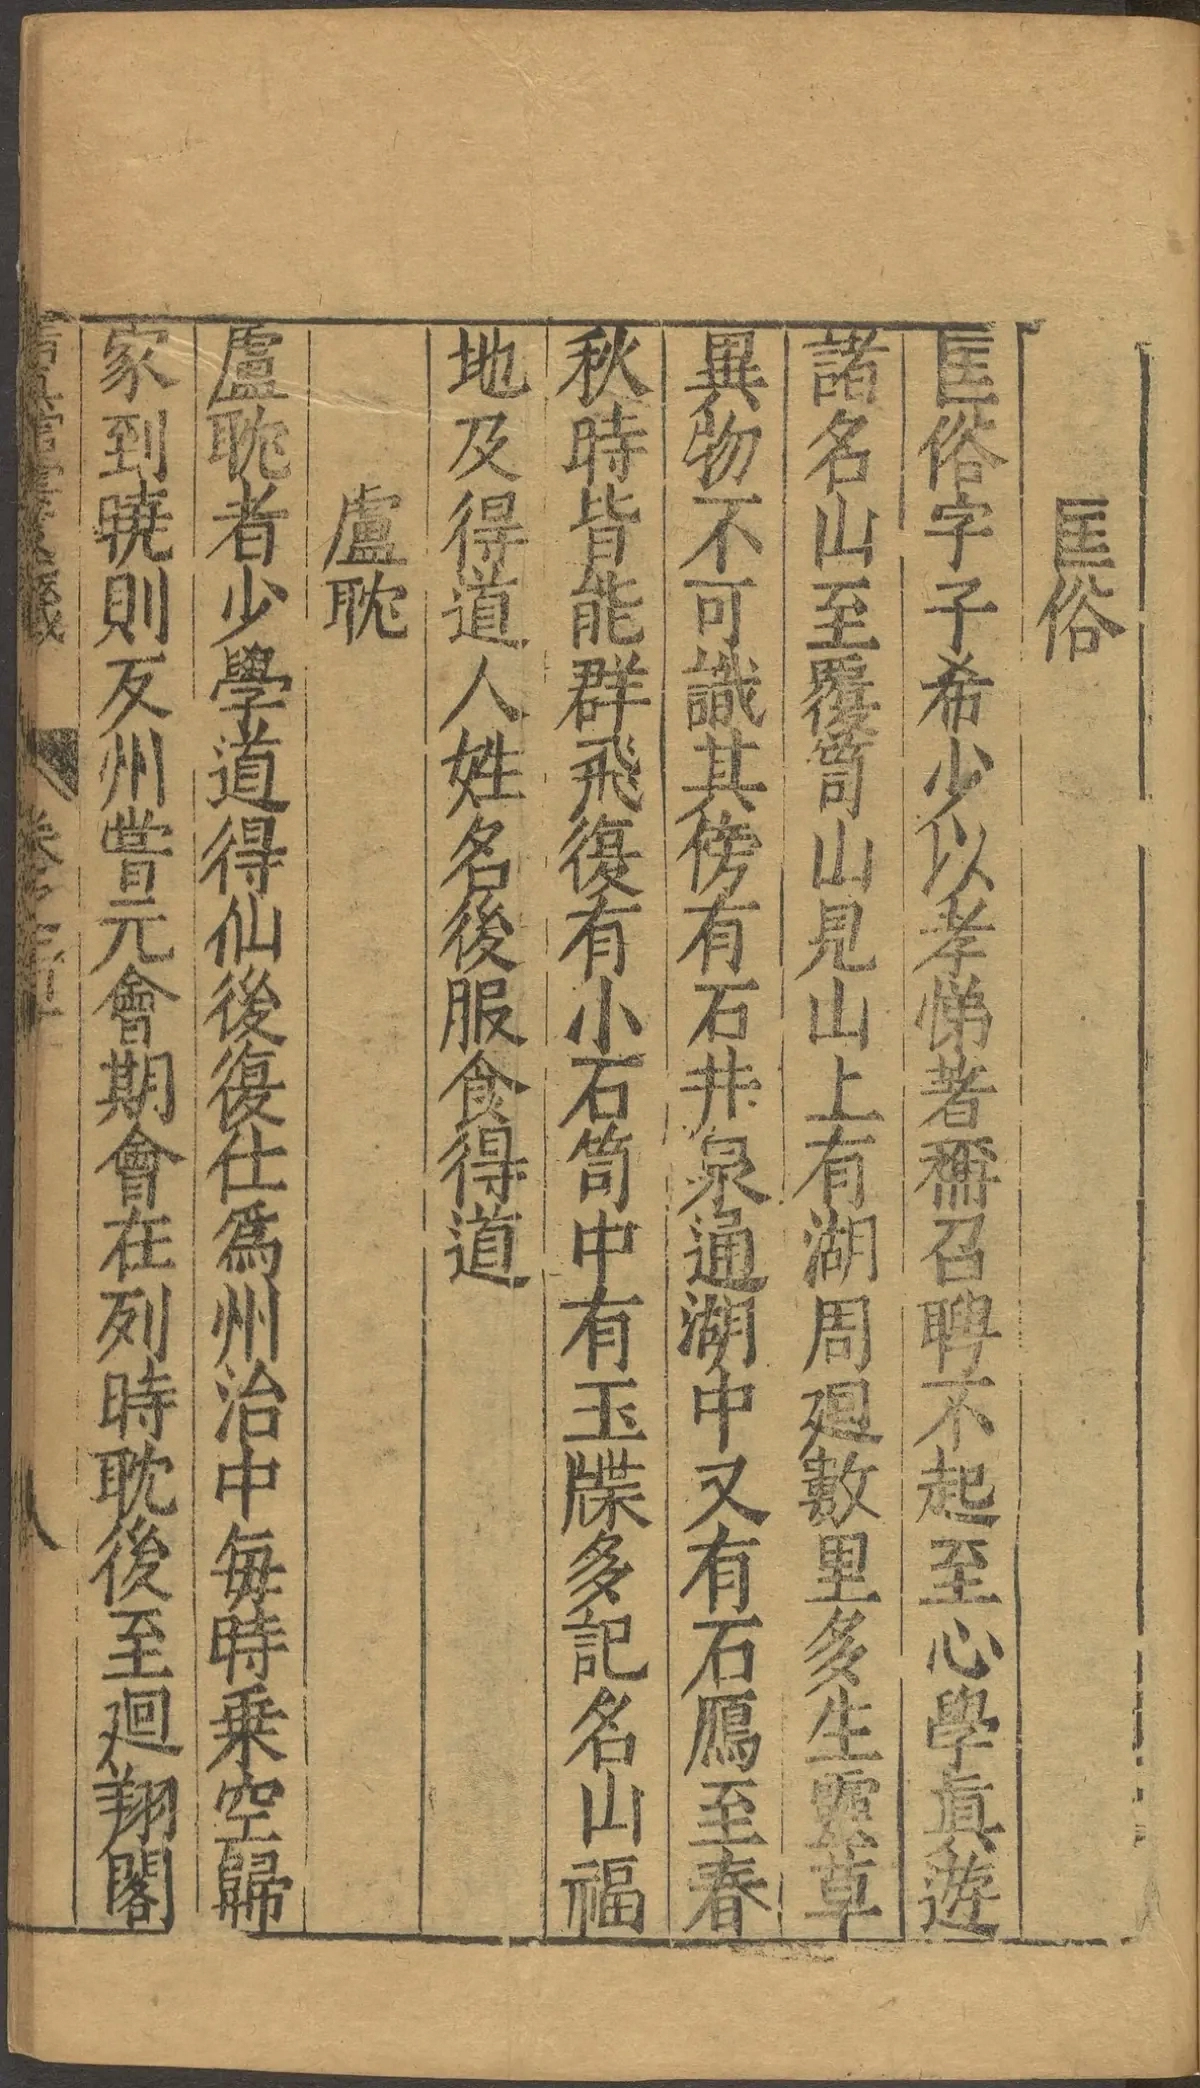 匡俗
匡俗字子希少以孝悌著稱召聘不起至心學真遊
諸名山至覆笥山見山上有湖周迴數里多生靈草
異物不可識其傍有石井泉通湖中又有石鴈至春
秋時皆能群飛復有小石笥中有玉牒多記名山福
地及得道人姓名後服食得道
盧耽
盧耽者少學道得仙後復仕爲州治中每時乗空歸
家到曉則反州甞元會期會在列時耽後至迴翔閣